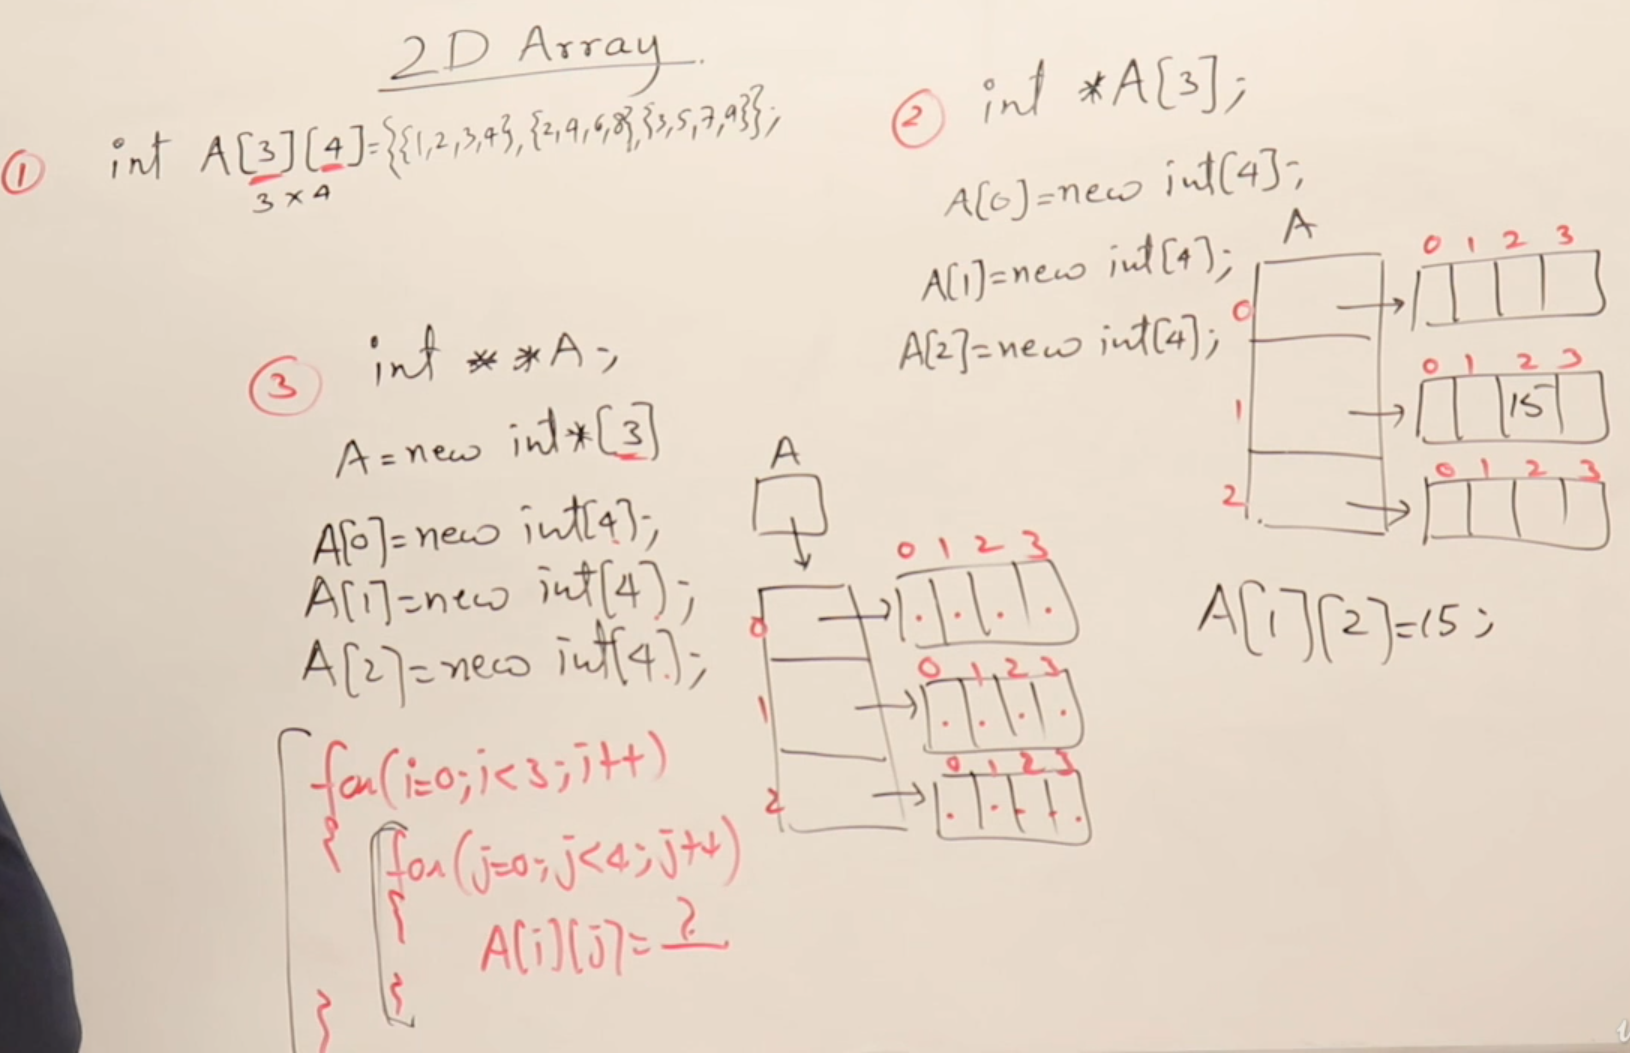 2D Array
① int A[3][4]={{1,2,3,4},{2,4,6,8},{3,5,7,9}};
3×4
② int *A[3];
A[0]=new int[4];
A[1]=new int[4];
A[2]=new int[4];
A
0 1 2 3
0
0 1 2 3
1
15
0 1 2 3
2
A[1][2]=15;
③ int **A;
A=new int*[3]
A[0]=new int[4];
A[1]=new int[4];
A[2]=new int[4];
A
0 1 2 3
0
0 1 2 3
1
0 1 2 3
2
for(i=0;i<3;i++)
{
for(j=0;j<4;j++)
{
A[i][j]=?
}
}